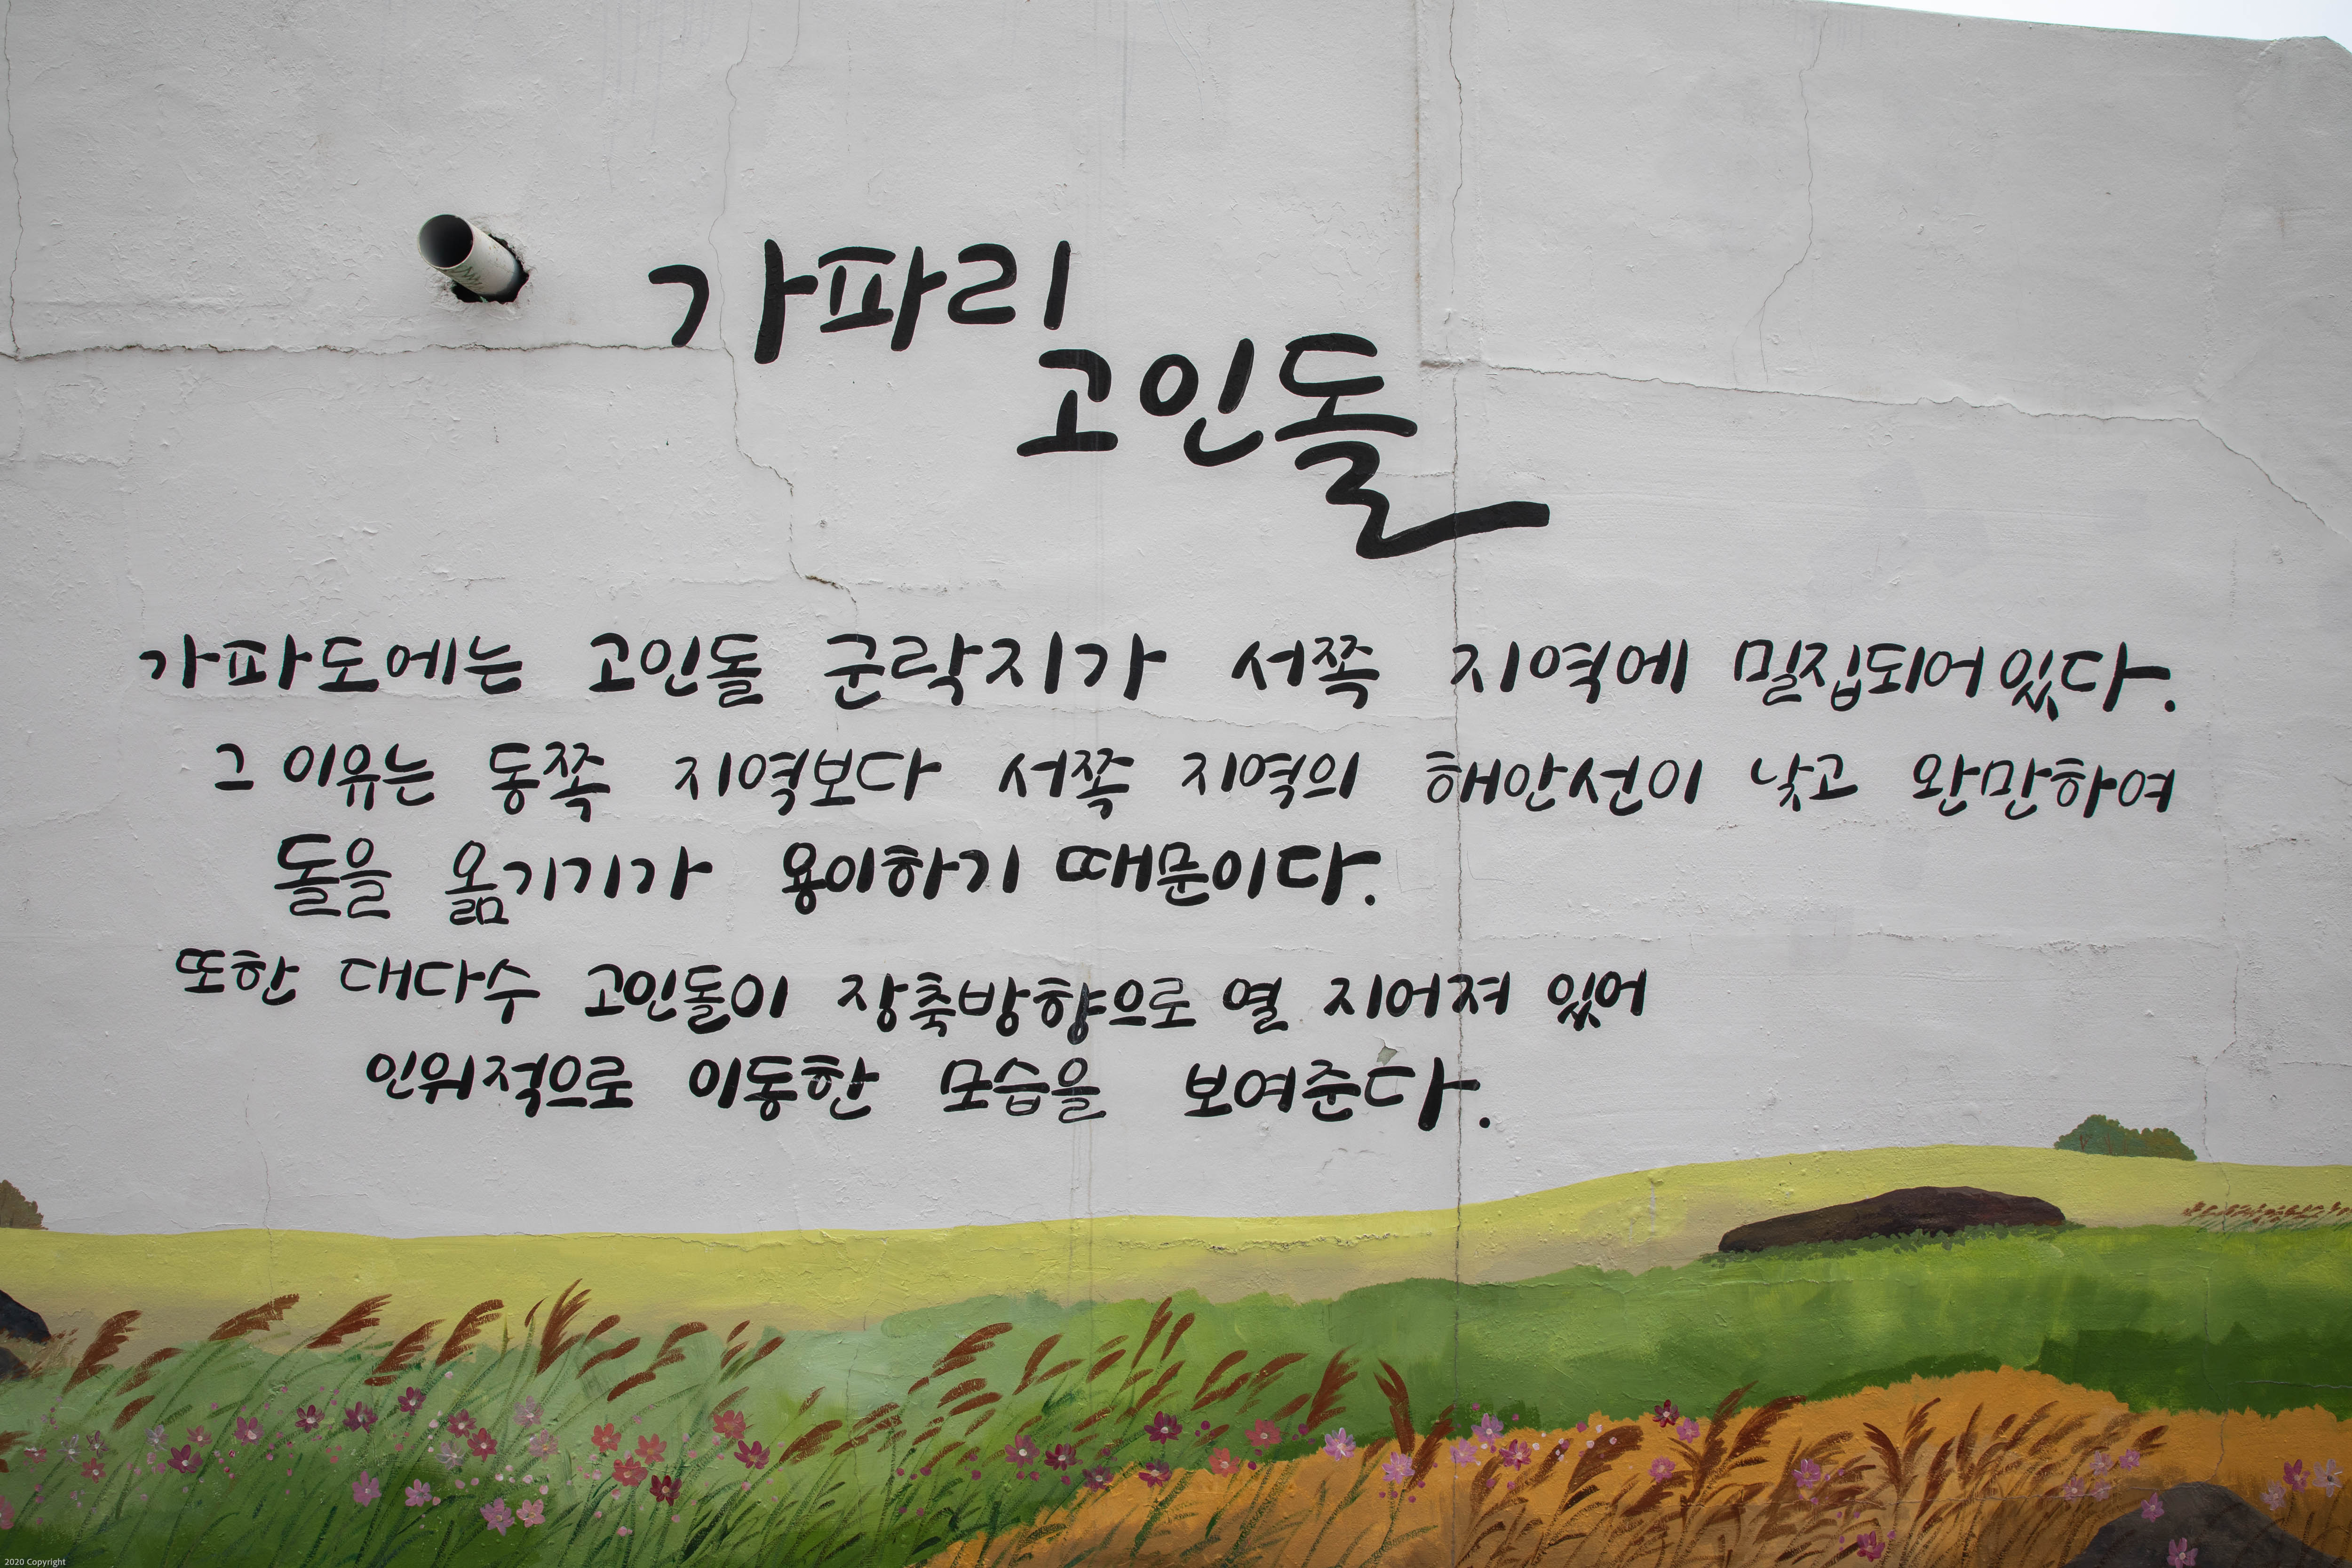 가파리
고인돌
가파도에는 고인돌 군락지가 서쪽 지역에 밀집되어 있다.
그 이유는 동쪽 지역보다 서쪽 지역의 해안선이 낮고 완만하여
돌을 옮기기가 용이하기 때문이다.
또한 대다수 고인돌이 장축방향으로 열 지어져 있어
인위적으로 이동한 모습을 보여준다.
2020 Copyright